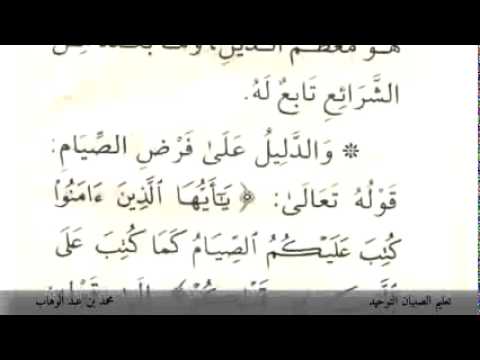 هُوَ مُعْظَمُ الدِّينِ، وَمَا بَعْدَهُ مِنَ
الشَّرَائِعِ تَابِعٌ لَهُ.
* وَالدَّلِيلُ عَلَىٰ فَرْضِ الصِّيَامِ:
قَوْلُهُ تَعَالَىٰ: ﴿ يَٰٓأَيُّهَا ٱلَّذِينَ ءَامَنُوا۟
كُتِبَ عَلَيْكُمُ ٱلصِّيَامُ كَمَا كُتِبَ عَلَى
تعليم الصبيان التوحيد
محمد بن عبد الوهاب